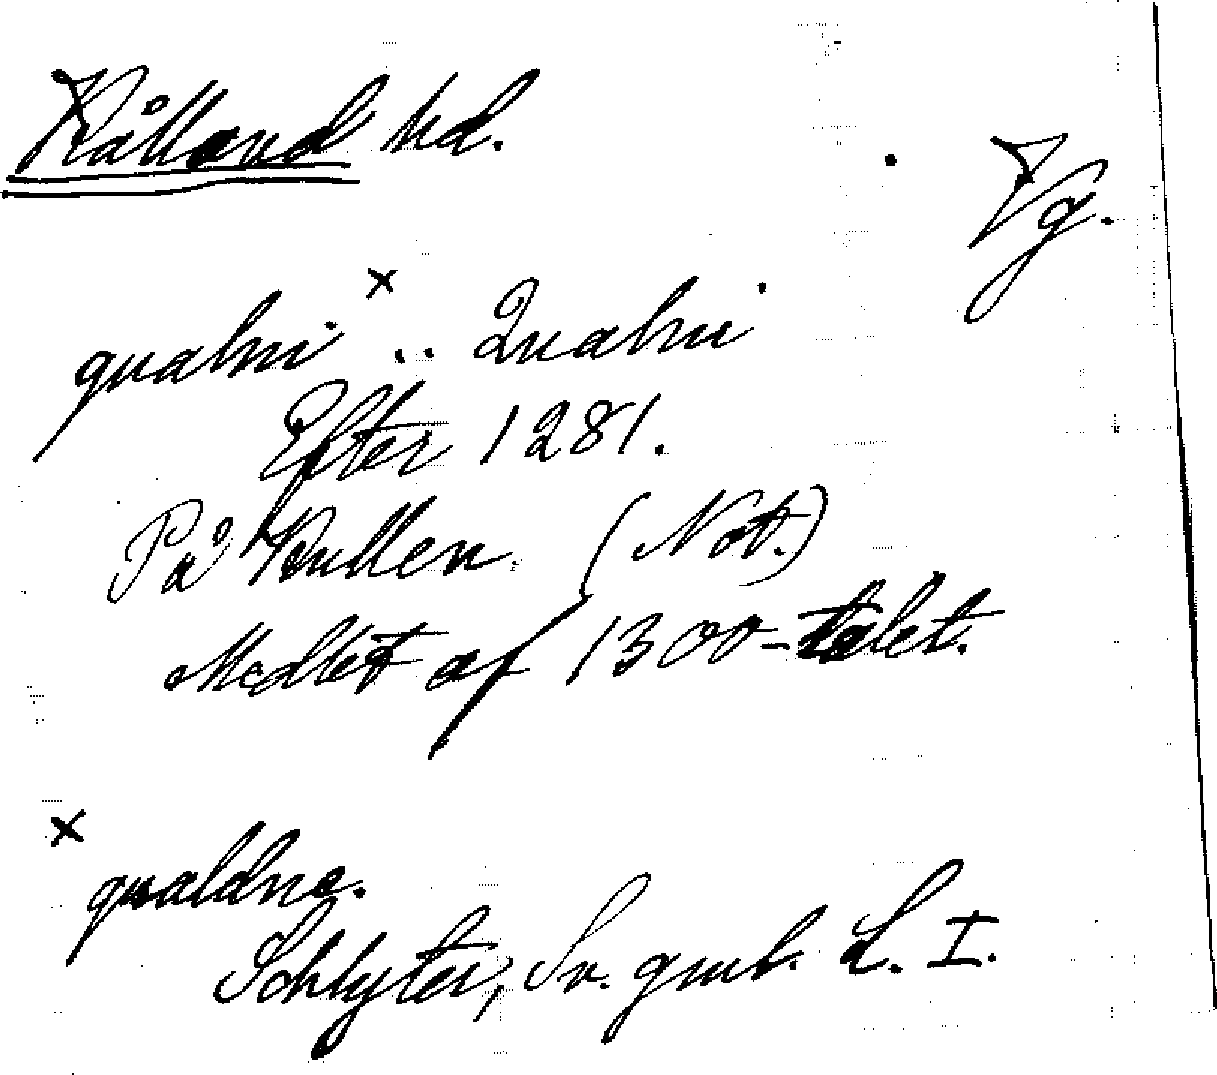 Kålland hd.
Vg.
×
qvalni .. Qvalni
Efter 1281.
På Kullen. (Not.)
Medlet af 1300-talet.
×
qvaldne.
Schlyter, Sv. gml. L. I.